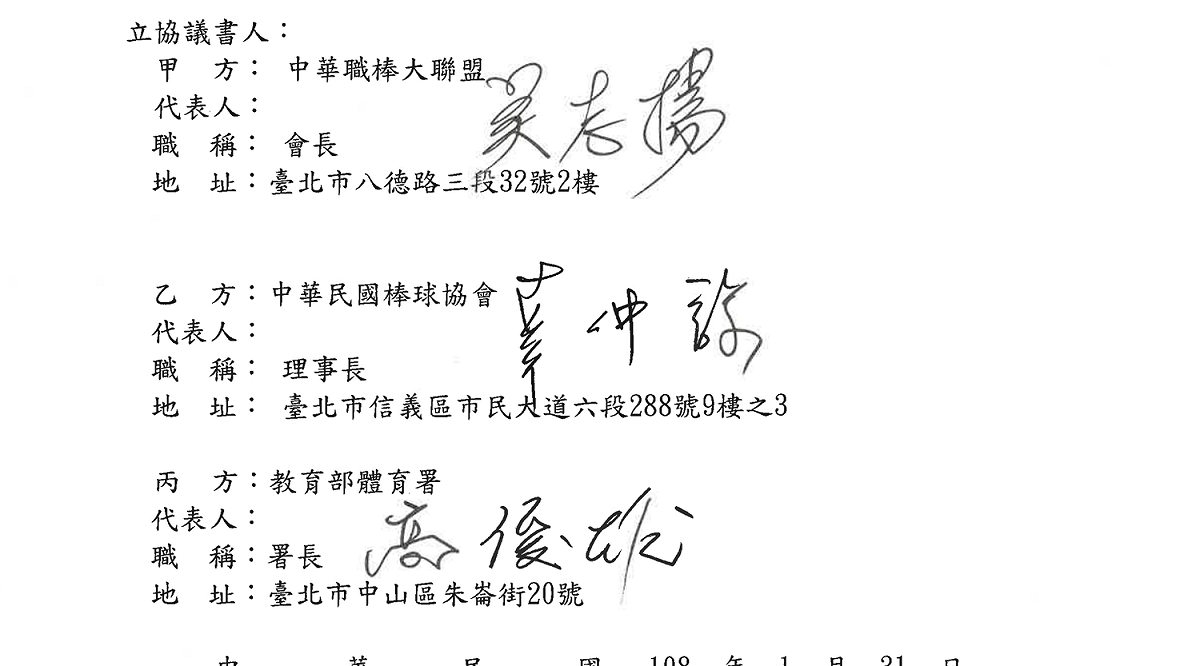 立協議書人：
甲　方：　中華職棒大聯盟
代表人：　吳志揚
職　稱：　會長
地　址：臺北市八德路三段32號2樓
乙　方：中華民國棒球協會
代表人：　辜仲諒
職　稱：　理事長
地　址：　臺北市信義區市民大道六段288號9樓之3
丙　方：教育部體育署
代表人：　高俊雄
職　稱：署長
地　址：臺北市中山區朱崙街20號
中　華　民　國　108　年　1　月　31　日